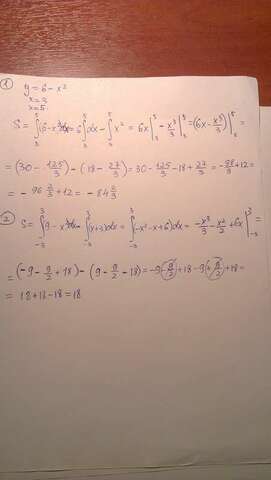 ① y = 6 - x²
x = 3
x = 5
S = ∫₃⁵ (6 - x²)dx = 6∫₃⁵ dx - ∫₃⁵ x² = 6x|₃⁵ - x³/3|₃⁵ = (6x - x³/3)|₃⁵ =
= (30 - 125/3) - (18 - 27/3) = 30 - 125/3 - 18 + 27/3 = -98/3 + 12 =
= - 96 2/3 + 12 = - 84 2/3
② S = ∫₋₃³ 9 - x² dx - ∫₋₃³ (x+3)dx = ∫₋₃³ (-x² - x + 6)dx = -x³/3 - x²/2 + 6x |₋₃³ =
= (-9 - 9/2 + 18) - (9 - 9/2 - 18) = -9 - 9/2 + 18 - 9 + 9/2 + 18 =
= 18 + 18 - 18 = 18